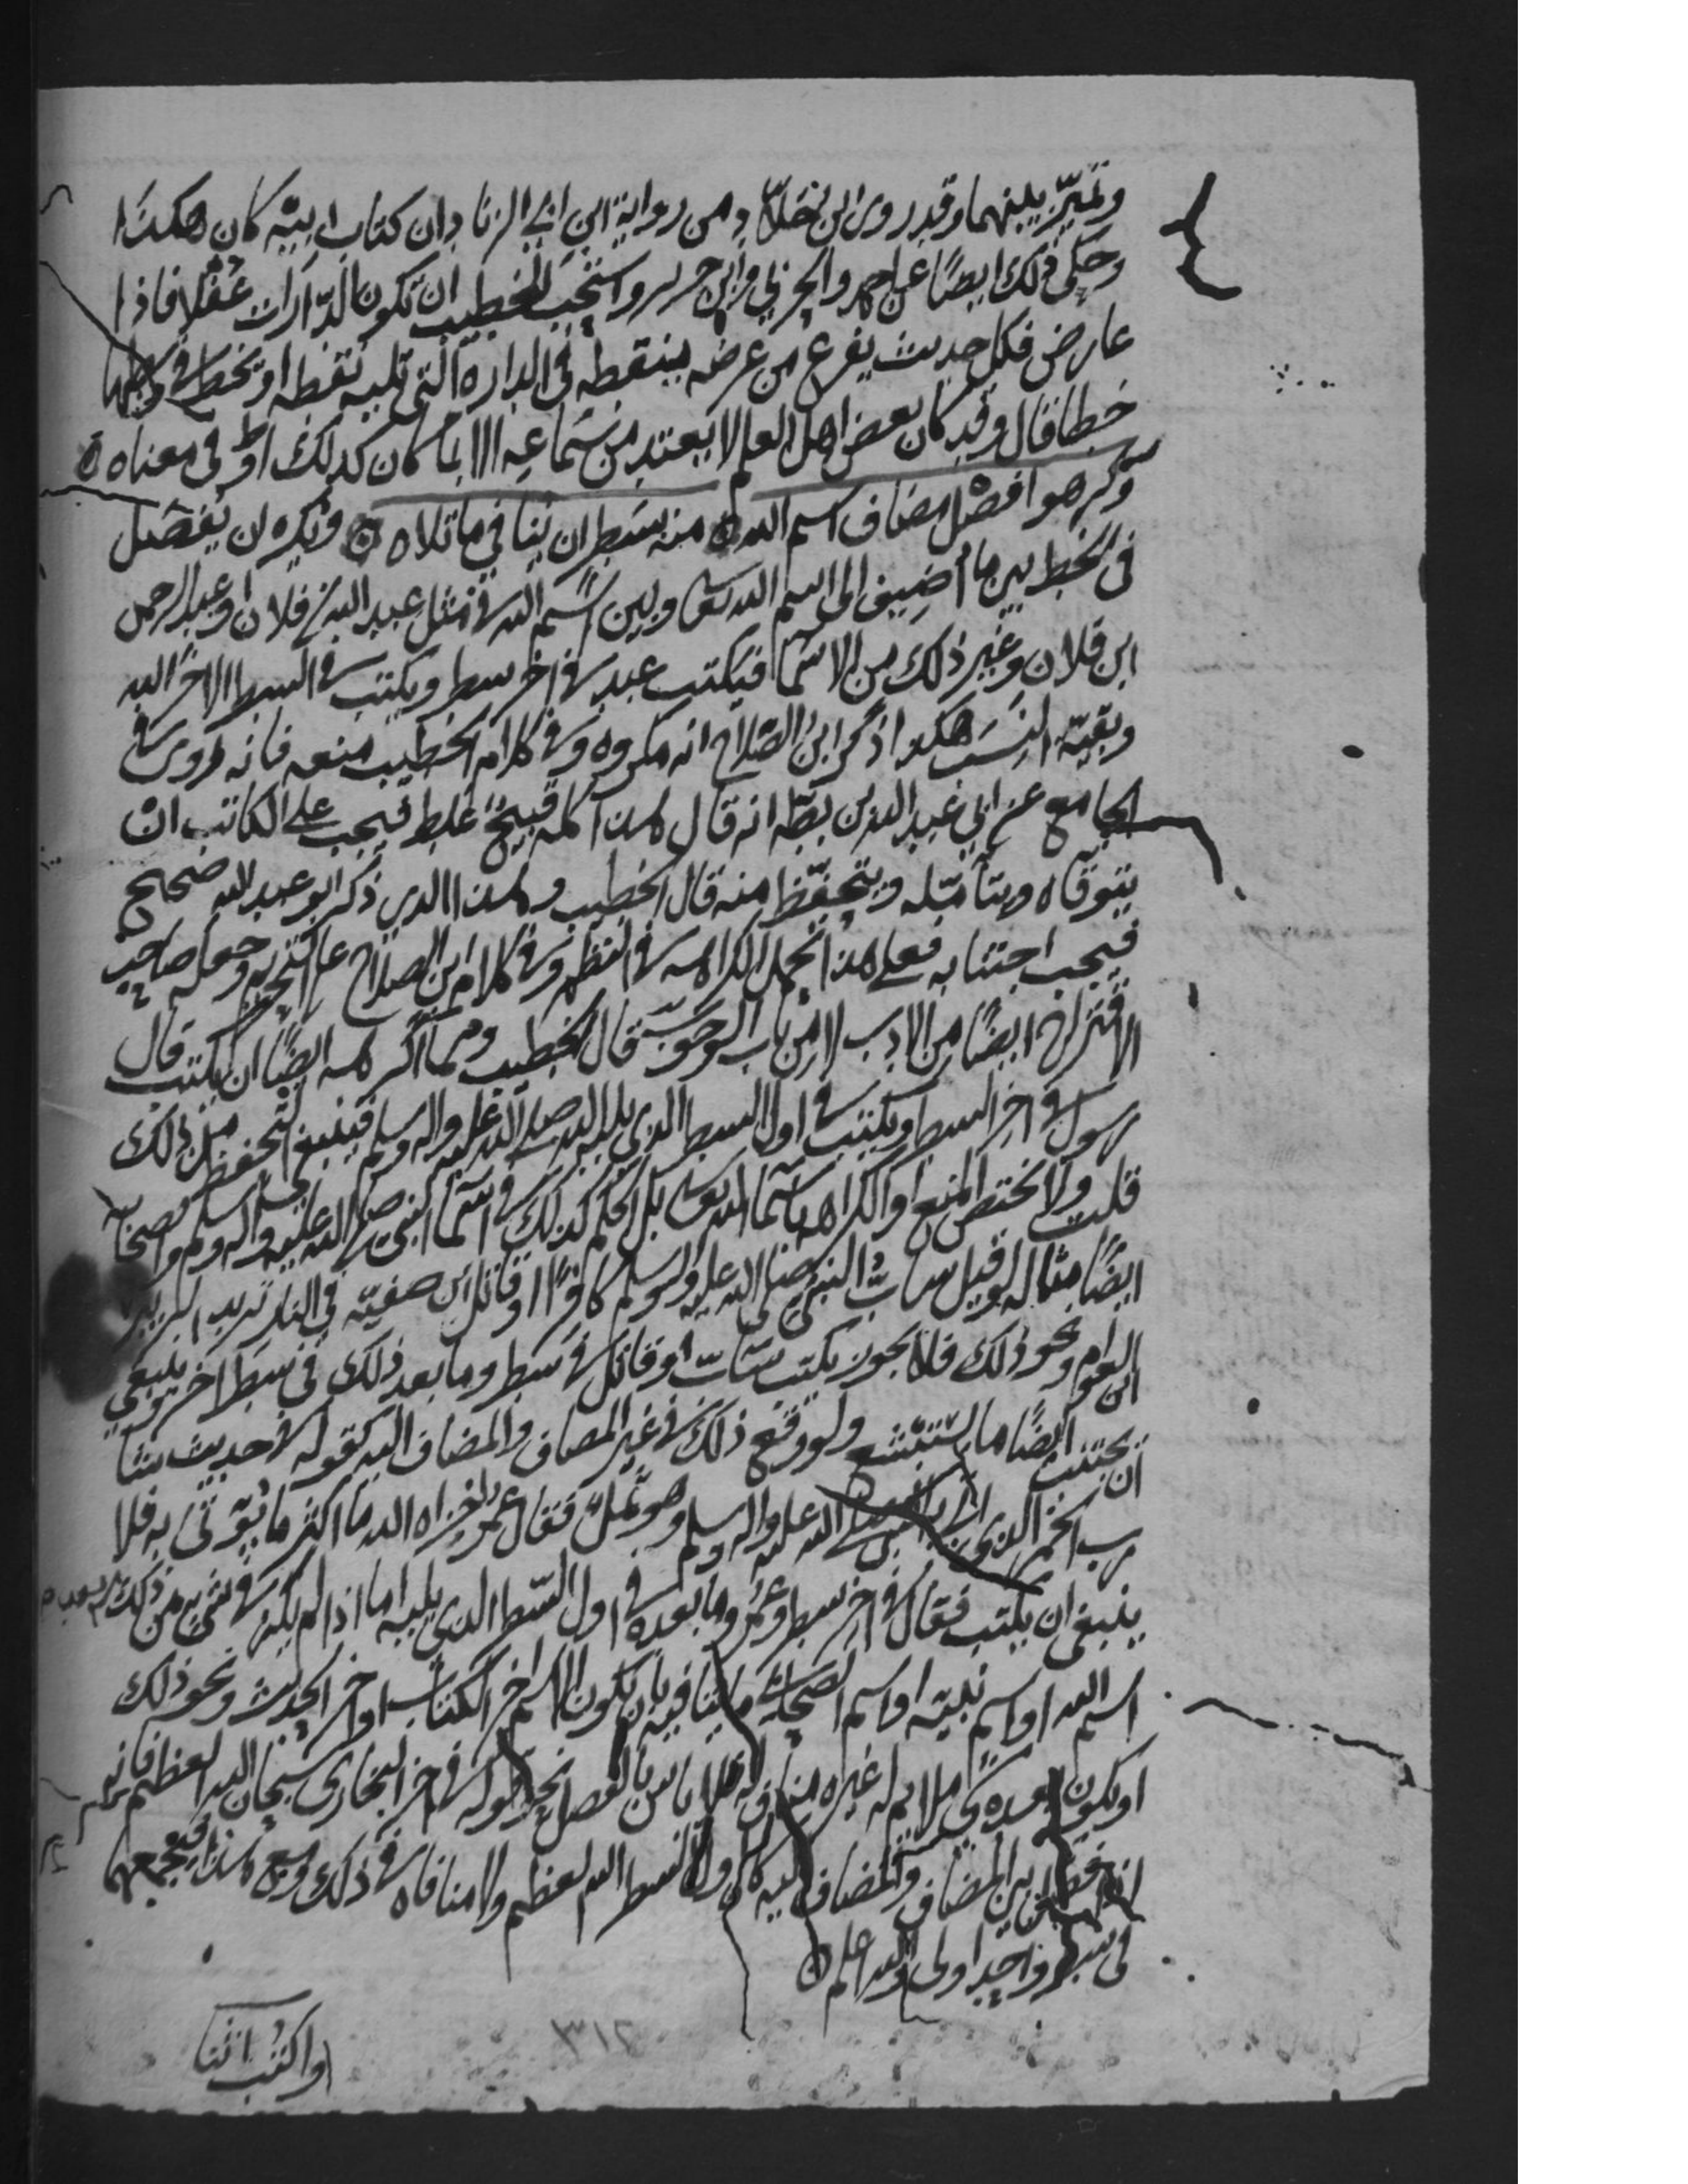 وتميز بينهما وقد روى ابن خلاد من رواية ابن ابي الزناد ان كتاب ابيه كان هكذا
وحكى ذلك ايضًا عن احمد والحربي وابن جرير واستحب الخطيب ان تكون الدارات غفلا فاذا
عارض فكل حديث يفرغ من عرضه ينقط في الدارة التي تليه نقطه او يخط في وسطها
خطا قال وقد كان بعض اهل العلم لا يعتد من سماعه الا بما كان كذلك او في معناه ه
وكرهوا افصل مضاف اسم الله ه منه بسطر ان ينافي ما تلاه ه ويكره ان يفصل
في الخط بين ما اضيف الى اسم الله تعالى وبين اسم الله في مثل عبد الله بن فلان او عبد الرحمن
ابن فلان وغير ذلك من الاسما فيكتب عبد في اخر سطر ويكتب في السطر الاخر الله
وبقية النسب هكذا ذكر ابن الصلاح انه مكروه وفي كلام الخطيب منعه فانه روى في
الجامع عن ابي عبد الله بن بطة انه قال هذا كله قبيح غلط فيجب على الكاتب ان
يتوقاه ويتأمله ويتحفظ منه قال الخطيب وهذا الذي ذكر ابو عبد الله صحيح
فيجب اجتنابه فعلى هذا تحمل الكراهه في النظم وفي كلام ابن الصلاح على التحريم وجعله صاحب
الاقتراح ايضًا من الادب لا من باب الوجوب قال الخطيب ومما اكرهه ايضًا ان يكتب قال
رسول في اخر السطر ويكتب في اول السطر الذي يليه الله صلى الله عليه واله وسلم فينبغي التحفظ من ذلك
قلت ولا يختص المنع او الكراهه باسما الله تعالى بل الحكم كذلك في اسما النبي صلى الله عليه واله وسلم واصحابه
ايضًا مثاله لو قيل ساب النبي صلى الله عليه واله وسلم كافرًا او قاتل ابن صفية في النار يريد الزبير
ابن العوام ونحو ذلك فلا يجوز يكتب ساب او قاتل في سطر وما بعد ذلك في سطر اخر وينبغي
ان يجتنب ايضًا ما يستبشع ولو وقع ذلك في غير المضاف والمضاف اليه كقوله في حديث شا
رب الخمر الذي اتي به النبي صلى الله عليه واله وسلم وهو ثمل فقال عمر اخزاه الله ما اكثر ما يؤتى به فلا
ينبغي ان يكتب فقال في اخر سطر وعمر وما بعده في اول السطر الذي يليه اما اذا لم يكن في شيء من ذلك بعد
اسم الله او اسم نبيه او اسم الصحابي ما ينافيه بان يكون الاسم اخر الكتاب او اخر الحديث ونحو ذلك
او يكون بعده شي ملايم له غير مناف له فلا باس بالفصل نحو قوله في اخر البخاري سبحان الله العظيم فانه
اذا فصل بين المضاف والمضاف اليه كان اول السطر الله العظيم ولا منافاه في ذلك ومع هذا فجمعهما
في سطر واحد اولى والله اعلم ه
واكتب ثنا